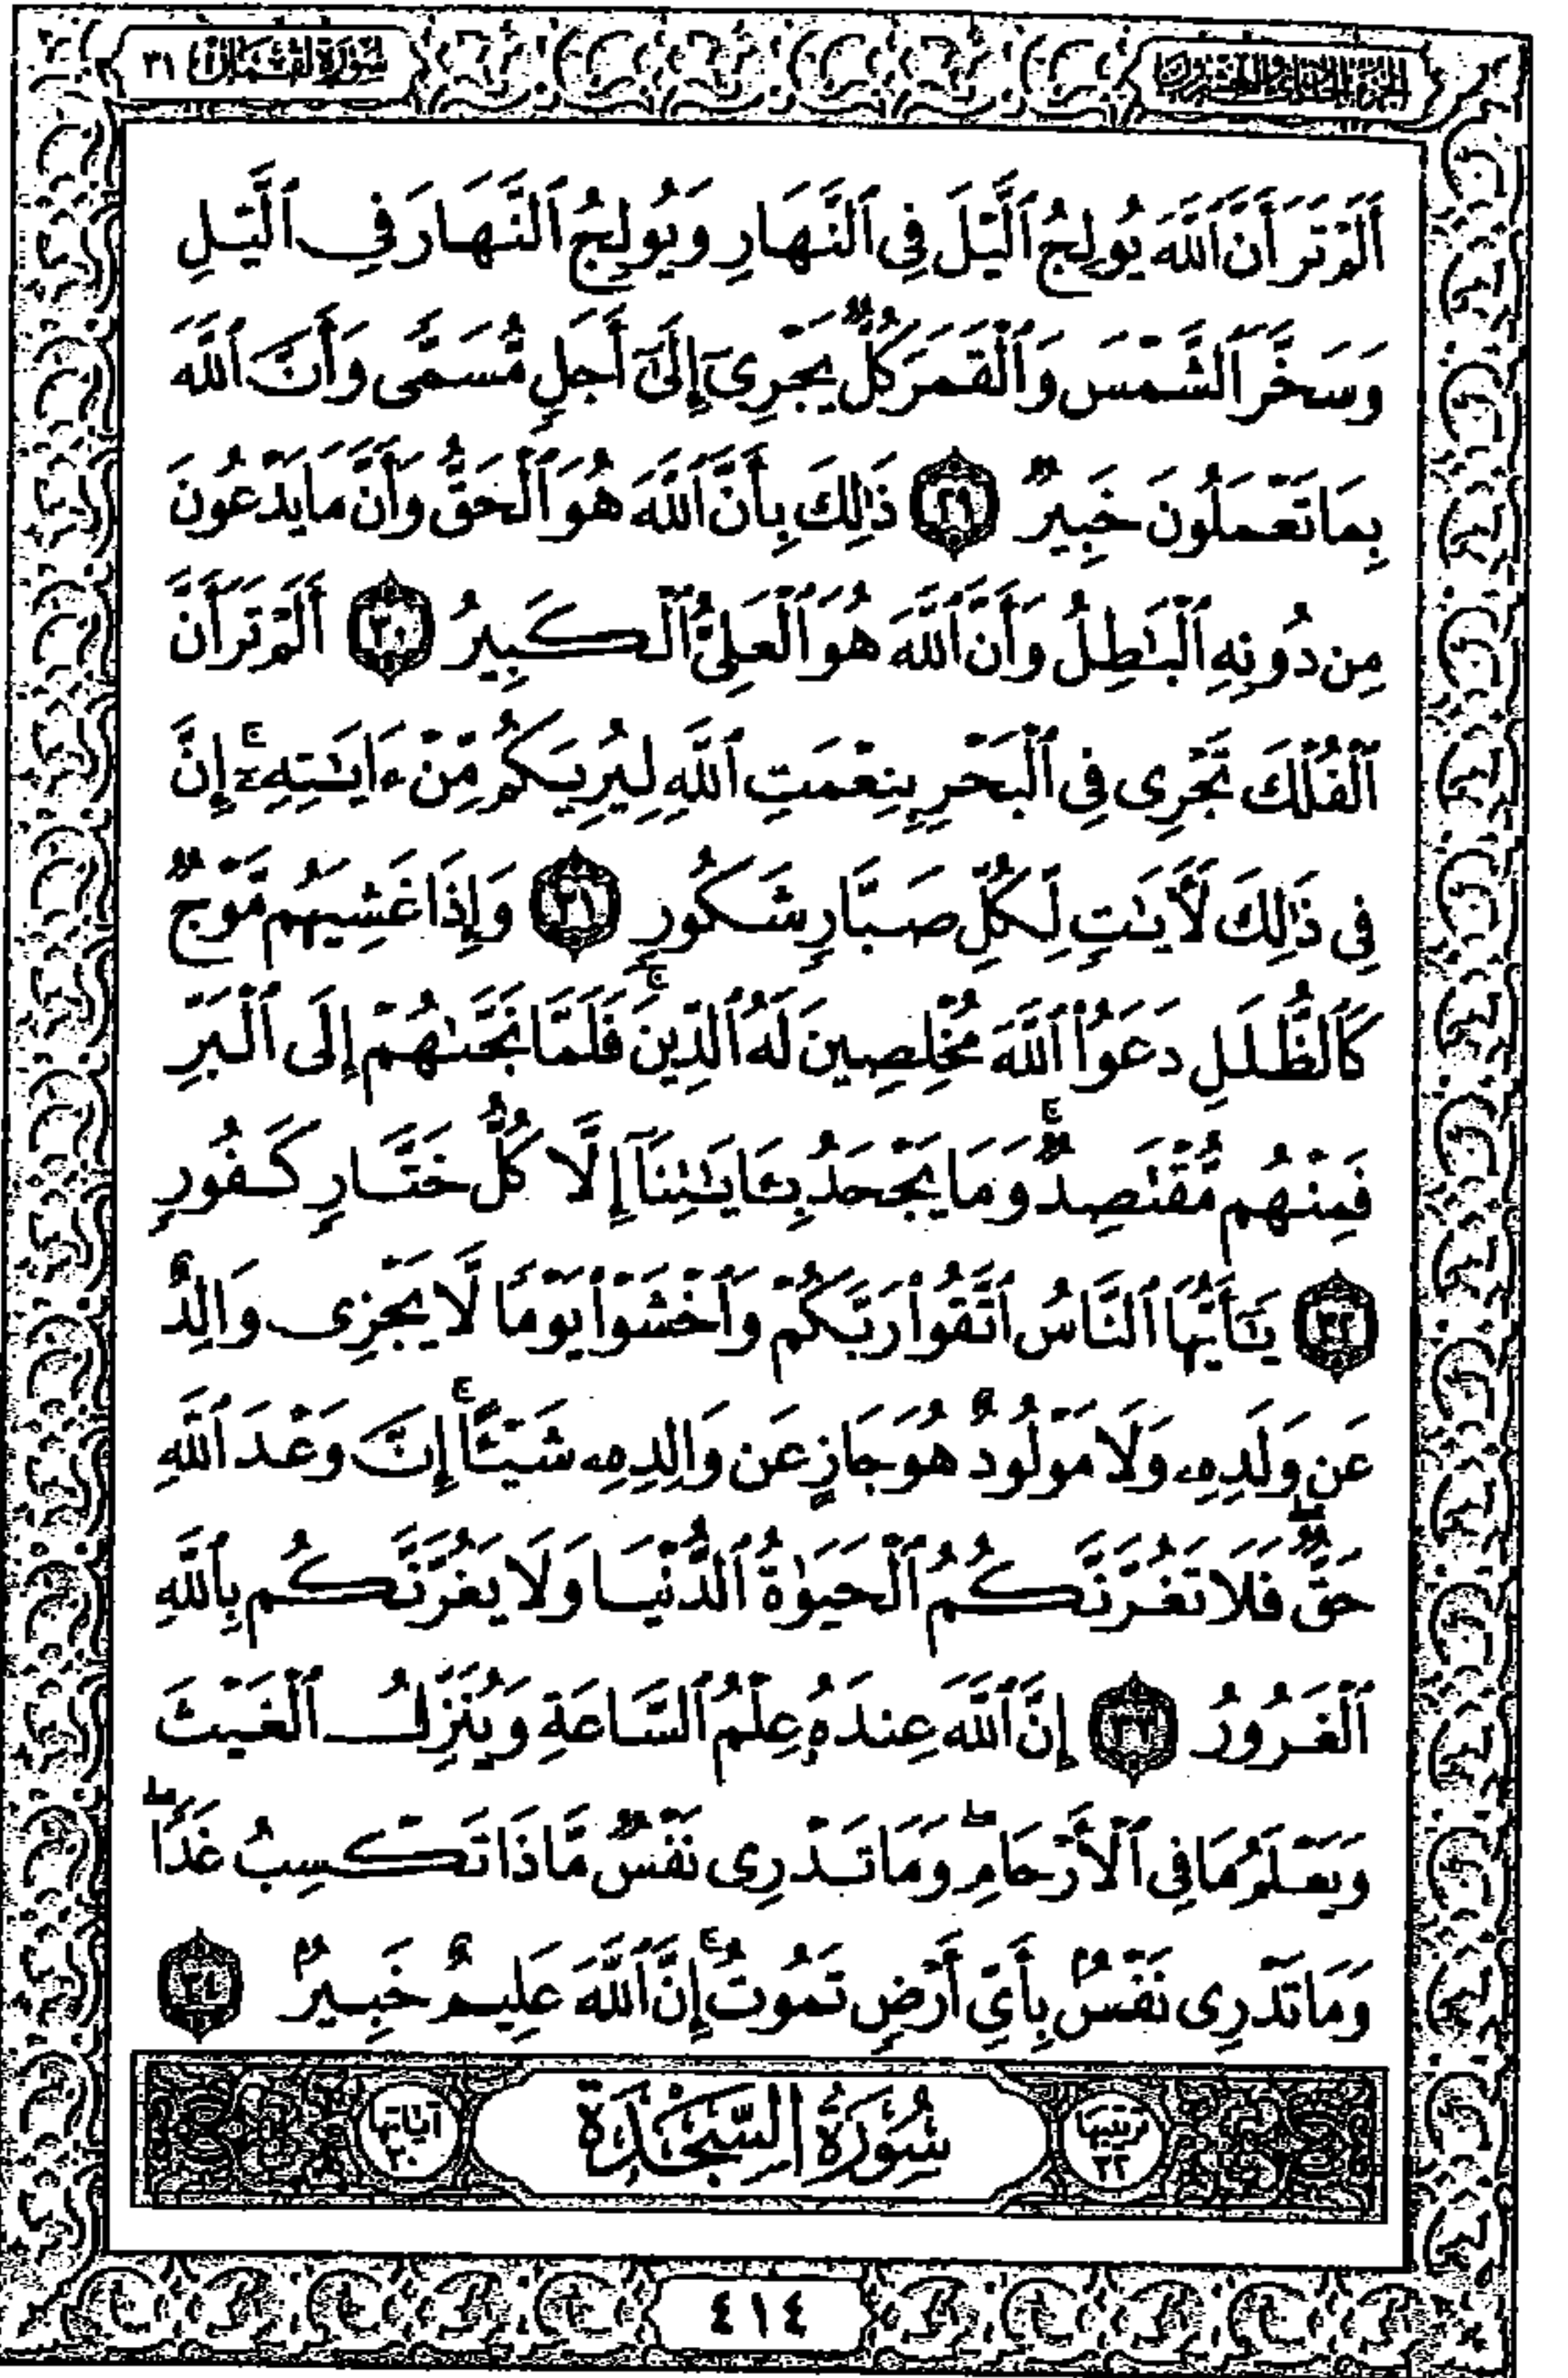 سُورَةُ لُقْمَان ٣١
الجُزْءُ الحَادِي وَالعِشْرُونَ
أَلَمْ تَرَ أَنَّ ٱللَّهَ يُولِجُ ٱلَّيْلَ فِى ٱلنَّهَارِ وَيُولِجُ ٱلنَّهَارَ فِى ٱلَّيْلِ
وَسَخَّرَ ٱلشَّمْسَ وَٱلْقَمَرَ كُلٌّ يَجْرِىٓ إِلَىٰٓ أَجَلٍ مُّسَمًّى وَأَنَّ ٱللَّهَ
بِمَا تَعْمَلُونَ خَبِيرٌ ٢٩ ذَٰلِكَ بِأَنَّ ٱللَّهَ هُوَ ٱلْحَقُّ وَأَنَّ مَا يَدْعُونَ
مِن دُونِهِ ٱلْبَٰطِلُ وَأَنَّ ٱللَّهَ هُوَ ٱلْعَلِىُّ ٱلْكَبِيرُ ٣٠ أَلَمْ تَرَ أَنَّ
ٱلْفُلْكَ تَجْرِى فِى ٱلْبَحْرِ بِنِعْمَتِ ٱللَّهِ لِيُرِيَكُم مِّنْ ءَايَٰتِهِۦٓ ۚ إِنَّ
فِى ذَٰلِكَ لَأَيَٰتٍ لِّكُلِّ صَبَّارٍ شَكُورٍ ٣١ وَإِذَا غَشِيَهُم مَّوْجٌ
كَٱلظُّلَلِ دَعَوُا۟ ٱللَّهَ مُخْلِصِينَ لَهُ ٱلدِّينَ ۚ فَلَمَّا نَجَّىٰهُمْ إِلَى ٱلْبَرِّ
فَمِنْهُم مُّقْتَصِدٌ ۚ وَمَا يَجْحَدُ بِـَٔايَٰتِنَآ إِلَّا كُلُّ خَتَّارٍ كَفُورٍ
٣٢ يَٰٓأَيُّهَا ٱلنَّاسُ ٱتَّقُوا۟ رَبَّكُمْ وَٱخْشَوْا۟ يَوْمًا لَّا يَجْزِى وَالِدٌ
عَن وَلَدِهِۦ وَلَا مَوْلُودٌ هُوَ جَازٍ عَن وَالِدِهِۦ شَيْـًٔا ۚ إِنَّ وَعْدَ ٱللَّهِ
حَقٌّ ۖ فَلَا تَغُرَّنَّكُمُ ٱلْحَيَوٰةُ ٱلدُّنْيَا وَلَا يَغُرَّنَّكُم بِٱللَّهِ
ٱلْغَرُورُ ٣٣ إِنَّ ٱللَّهَ عِندَهُۥ عِلْمُ ٱلسَّاعَةِ وَيُنَزِّلُ ٱلْغَيْثَ
وَيَعْلَمُ مَا فِى ٱلْأَرْحَامِ ۖ وَمَا تَدْرِى نَفْسٌ مَّاذَا تَكْسِبُ غَدًا ۖ
وَمَا تَدْرِى نَفْسٌۢ بِأَىِّ أَرْضٍ تَمُوتُ ۚ إِنَّ ٱللَّهَ عَلِيمٌ خَبِيرٌۢ ٣٤
ترتيبها ٣٢ سُورَةُ السَّجْدَةِ آياتها ٣٠
٤١٤